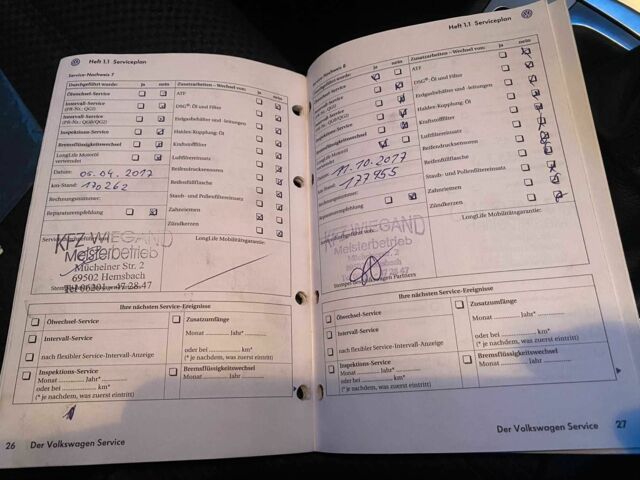 Heft 1.1 Serviceplan
Service-Nachweis 7
Durchgeführt wurde: ja nein
Ölwechsel-Service
Intervall-Service
(PR-Nr.: QG1)
Intervall-Service
(PR-Nr.: QG0/QG2)
Inspektions-Service
Bremsflüssigkeitswechsel
LongLife Motoröl
verwendet
Datum: 05.04.2017
km-Stand: 170262
Rechnungsnummer:
Reparaturempfehlung
Zusatzarbeiten – Wechsel von: ja nein
ATF
DSG®-Öl und Filter
Erdgasbehälter und -leitungen
Haldex-Kupplung: Öl
Kraftstofffilter
Luftfiltereinsatz
Reifendichtmittel
Reifenfüllflasche
Staub- und Pollenfiltereinsatz
Zahnriemen
Zündkerzen
LongLife Mobilitätsgarantie:
KFZ WIEGAND
Meisterbetrieb
Mücheiner Str. 2
69502 Hemsbach
Tel 06201 - 47 28 47
Ihre nächsten Service-Ereignisse
Ölwechsel-Service
Intervall-Service
nach flexibler Service-Intervall-Anzeige
Inspektions-Service
Monat Jahr*
oder bei km*
(* je nachdem, was zuerst eintritt)
Zusatzumfänge
Monat Jahr*
oder bei km*
(* je nachdem, was zuerst eintritt)
Bremsflüssigkeitswechsel
Monat Jahr
26 Der Volkswagen Service
Heft 1.1 Serviceplan
Service-Nachweis 8
Durchgeführt wurde: ja nein
QG1)
QG0/QG2)
LongLife Motoröl
11.10.2017
177955
Reparaturempfehlung
Zusatzarbeiten – Wechsel von: ja nein
ATF
DSG®-Öl und Filter
Erdgasbehälter und -leitungen
Haldex-Kupplung: Öl
Kraftstofffilter
Luftfiltereinsatz
Reifendichtmittel
Reifenfüllflasche
Staub- und Pollenfiltereinsatz
Zahnriemen
Zündkerzen
LongLife Mobilitätsgarantie:
KFZ WIEGAND
Meisterbetrieb
Str. 2
Stempel des Volkswagen Partners
Ihre nächsten Service-Ereignisse
Ölwechsel-Service
Intervall-Service
nach flexibler Service-Intervall-Anzeige
Inspektions-Service
Monat Jahr*
oder bei km*
(* je nachdem, was zuerst eintritt)
Zusatzumfänge
Monat Jahr*
oder bei km*
(* je nachdem, was zuerst eintritt)
Bremsflüssigkeitswechsel
Monat Jahr
Der Volkswagen Service 27